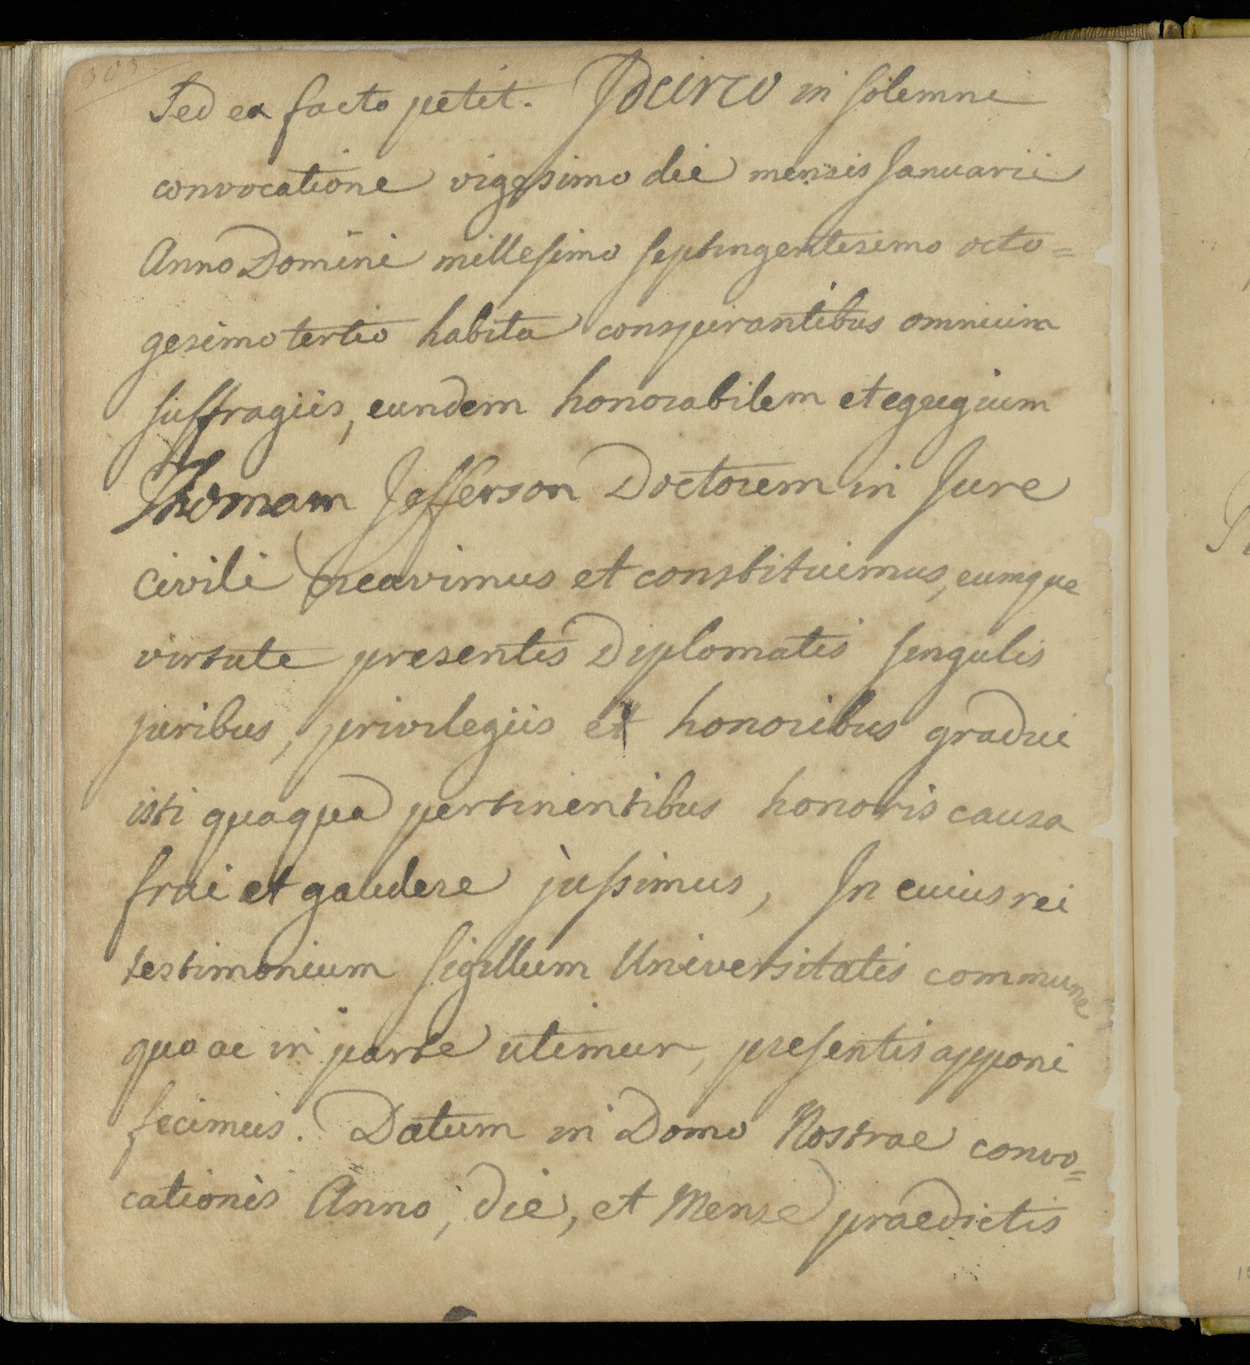 303
Sed ex facto petit. Idcirco in solemni
convocatione vigesimo die mensis Januarii
Anno Domini millesimo septingentesimo octo=
gesimo tertio habita conspirantibus omnium
suffragiis, eundem honorabilem et egregium
Thomam Jefferson Doctorem in Jure
civili Creavimus et constituimus, eumque
virtute presentis Diplomatis singulis
juribus, privilegiis et honoribus gradui
isti quaqua pertinentibus honoris causa
frui et gaudere jussimus, In cuius rei
testimonium Sigillum Universitatis commune
quo ac in parte utimur, presentis apponi
fecimus. Datum in Domo Nostrae convo=
cationis Anno, die, et Mense praedictis